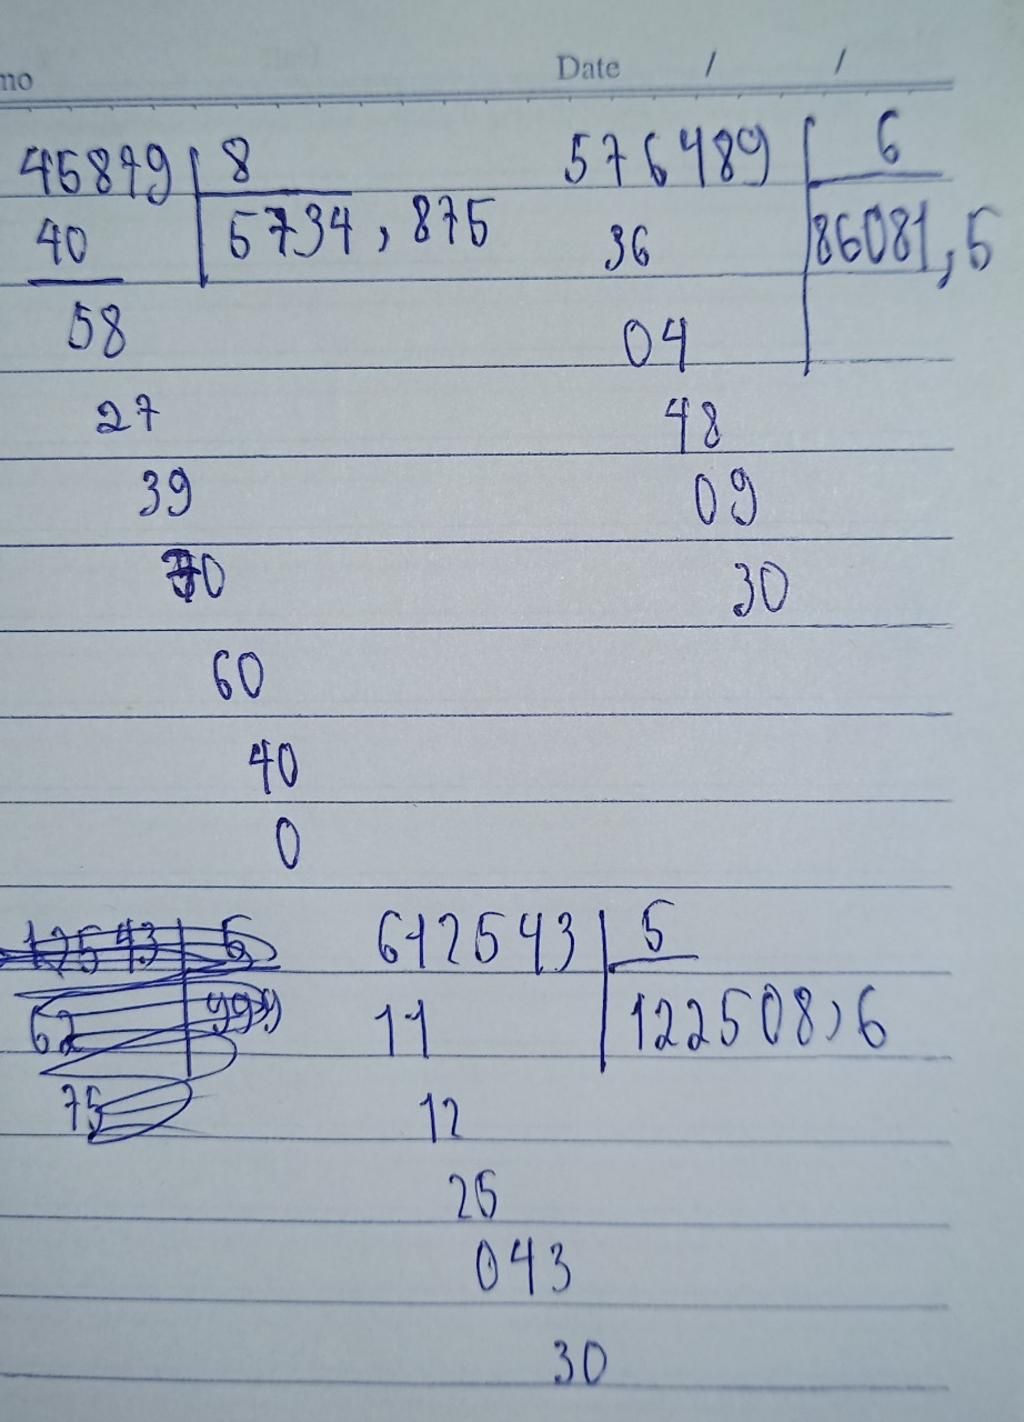 mo Date / /
45879 8 576489 6
40 5734,875 36 86081,5
58 04
27 48
39 09
70 30
60
40
0
12543 5 612543 5
62 999 11 122508,6
75 12
25
043
30